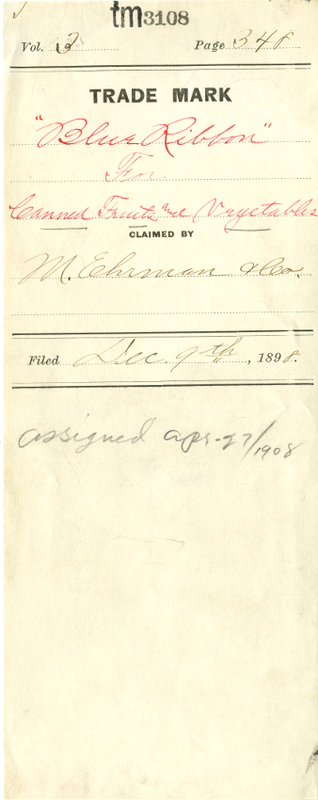 tm3108
Vol. 3 Page 348
TRADE MARK
"Blue Ribbon"
For
Canned Fruits and Vegetables
CLAIMED BY
M. Ehrman & Co.
Filed Dec. 9th, 1898.
assigned apr-27/1908